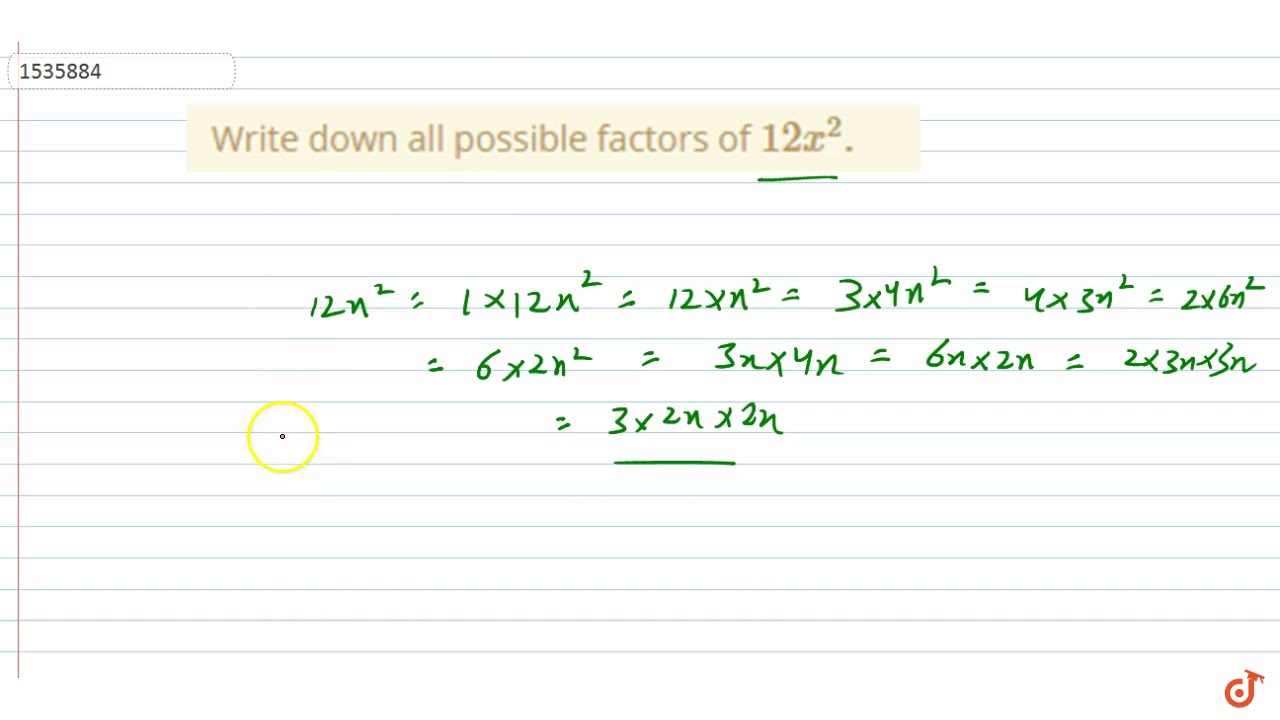 1535884
Write down all possible factors of 12x².
12x² = 1×12x² = 12×x² = 3×4x² = 4×3x² = 2×6x²
= 6×2x² = 3x×4x = 6x×2x = 2×3x×3x
= 3×2x×2x